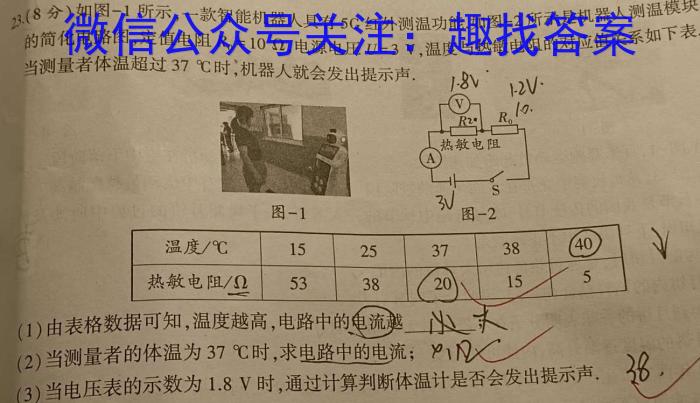 23.(8分)如图-1所示,一款智能机器人具有5G红外测温功能,如图-2所示是机器人测温模块
微信公众号关注:趣找答案
的简化电路图,定值电阻 10 Ω,电源电压U=3 V,温度与热敏电阻的对应关系如下表.
当测量者体温超过37 ℃时,机器人就会发出提示声.
1.8V
1.2V.
V
10.
R2
R₀
热敏电阻
A
S
3V
图-1
图-2
温度/℃ 15 25 37 38 40
热敏电阻/Ω 53 38 20 15 5
(1)由表格数据可知,温度越高,电路中的电流越 大
(2)当测量者的体温为37 ℃时,求电路中的电流;
(3)当电压表的示数为1.8 V时,通过计算判断体温计是否会发出提示声.
38.